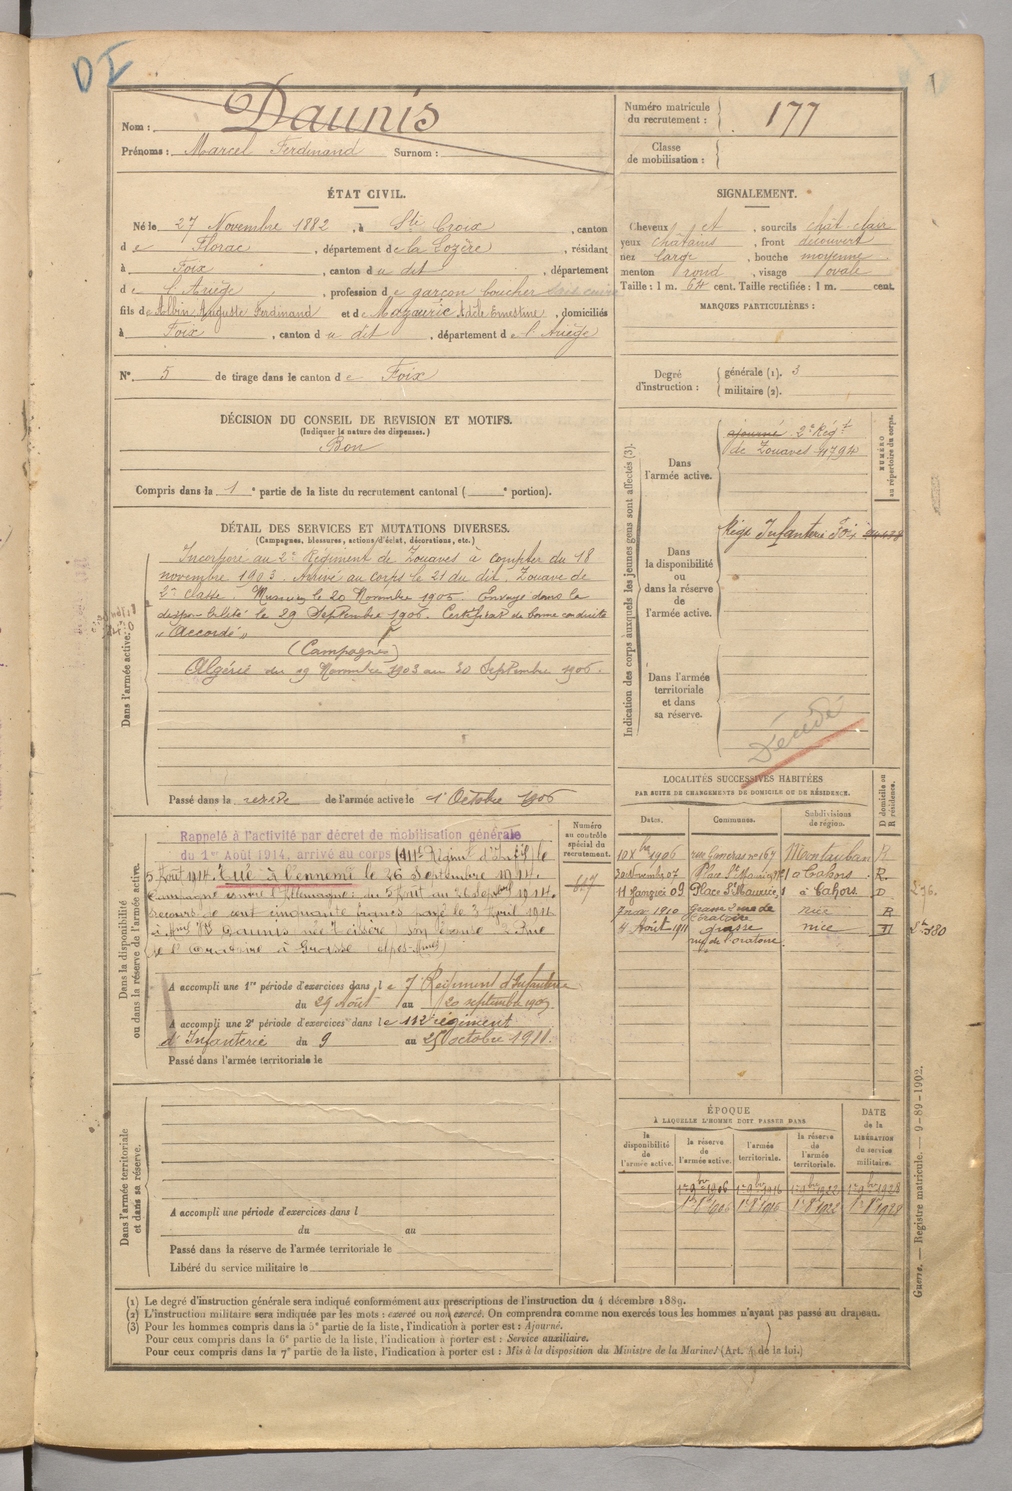 DI
Nom : Daunis
Prénoms : Marcel Ferdinand Surnom :
Numéro matricule du recrutement : 177
Classe de mobilisation :
ÉTAT CIVIL.
Né le 27 Novembre 1882, à Ste Croix, canton
de Florac, département de la Lozère, résidant
à Foix, canton du dit, département
de l'Ariège, profession de garçon boucher
fils de Albin Auguste Ferdinand et de Mazauric Adèle Ernestine, domiciliés
à Foix, canton du dit, département de l'Ariège
N° 5 de tirage dans le canton de Foix
SIGNALEMENT.
Cheveux et, sourcils chât-clair
yeux châtains, front découvert
nez large, bouche moyenne
menton rond, visage ovale
Taille : 1 m. 64 cent. Taille rectifiée : 1 m. cent.
MARQUES PARTICULIÈRES :
Degré d'instruction : générale (1). 3
militaire (2).
DÉCISION DU CONSEIL DE REVISION ET MOTIFS.
(Indiquer la nature des dispenses.)
Bon
Compris dans la 1e partie de la liste du recrutement cantonal ( e portion).
DÉTAIL DES SERVICES ET MUTATIONS DIVERSES.
(Campagnes, blessures, actions d'éclat, décorations, etc.)
Dans l'armée active.
Incorporé au 2e Régiment de Zouaves à compter du 18
novembre 1903. Arrivé au corps le 21 du dit. Zouave de
2e classe. le 20 Novembre 1905. Envoyé dans la
disponibilité le 29 Septembre 1906. Certificat de bonne conduite
"Accordé"
(Campagnes)
Algérie du 19 Novembre 1903 au 30 Septembre 1906.
Passé dans la réserve de l'armée active le 1r Octobre 1906
Indication des corps auxquels les jeunes gens sont affectés (3).
NUMÉRO au répertoire du corps.
Dans l'armée active.
ajourné 2e Régt
de Zouaves 11794
Dans la disponibilité ou dans la réserve de l'armée active.
Régt Infanterie Foix
Dans l'armée territoriale et dans sa réserve.
Décédé
Dans la disponibilité ou dans la réserve de l'armée active.
Numéro au contrôle spécial du recrutement.
Rappelé à l'activité par décret de mobilisation générale
du 1er Août 1914, arrivé au corps (111e Régimt d'Inf.) le
5 Août 1914. Tué à l'ennemi le 26 Septembre 1914.
Campagne contre l'Allemagne : du 5 Août au 26 Septbre 1914.
Secours de cent cinquante francs payé le 3 Avril 191
à Mme Vve Daunis née Teissère son épouse 2 Rue
de l'Oratoire à Grasse (Alpes-Mmes)
617
A accompli une 1re période d'exercices dans le 7e Régiment d'Infanterie
du 29 Août au 20 septembre 1909
A accompli une 2e période d'exercices dans le 112e régiment
d'Infanterie du 9 au 25 octobre 1911.
Passé dans l'armée territoriale le
LOCALITÉS SUCCESSIVES HABITÉES
PAR SUITE DE CHANGEMENTS DE DOMICILE OU DE RÉSIDENCE.
Dates. Communes. Subdivisions de région. D domicile ou R résidence.
10 Xbre 1906 rue Gameras no 167 Montauban R
Novembre 07 Place St Maurice à Cahors R.
11 Janvier 09 Place St Maurice, 1 à Cahors. D
1910 Grasse 2 rue de l'Oratoire nice R
4 Août 1911 grasse rue de l'oratoire nice D
Dans l'armée territoriale et dans sa réserve.
A accompli une période d'exercices dans l
du au
Passé dans la réserve de l'armée territoriale le
Libéré du service militaire le
ÉPOQUE À LAQUELLE L'HOMME DOIT PASSER DANS
DATE de la LIBÉRATION du service militaire.
la disponibilité de l'armée active. la réserve de l'armée active. l'armée territoriale. la réserve de l'armée territoriale.
1r 9bre 1906 1r 9bre 1916 1r 9bre 1922 1r 9bre 1928
1r 8bre 1906 1r 8bre 1916 1r 8bre 1922 1r 8bre 1928
(1) Le degré d'instruction générale sera indiqué conformément aux prescriptions de l'instruction du 4 décembre 1889.
(2) L'instruction militaire sera indiquée par les mots : exercé ou non exercé. On comprendra comme non exercés tous les hommes n'ayant pas passé au drapeau.
(3) Pour les hommes compris dans la 5e partie de la liste, l'indication à porter est : Ajourné.
Pour ceux compris dans la 6e partie de la liste, l'indication à porter est : Service auxiliaire.
Pour ceux compris dans la 7e partie de la liste, l'indication à porter est : Mis à la disposition du Ministre de la Marine. (Art. 4 de la loi.)
Guerre. — Registre matricule. — 9-89-1902.